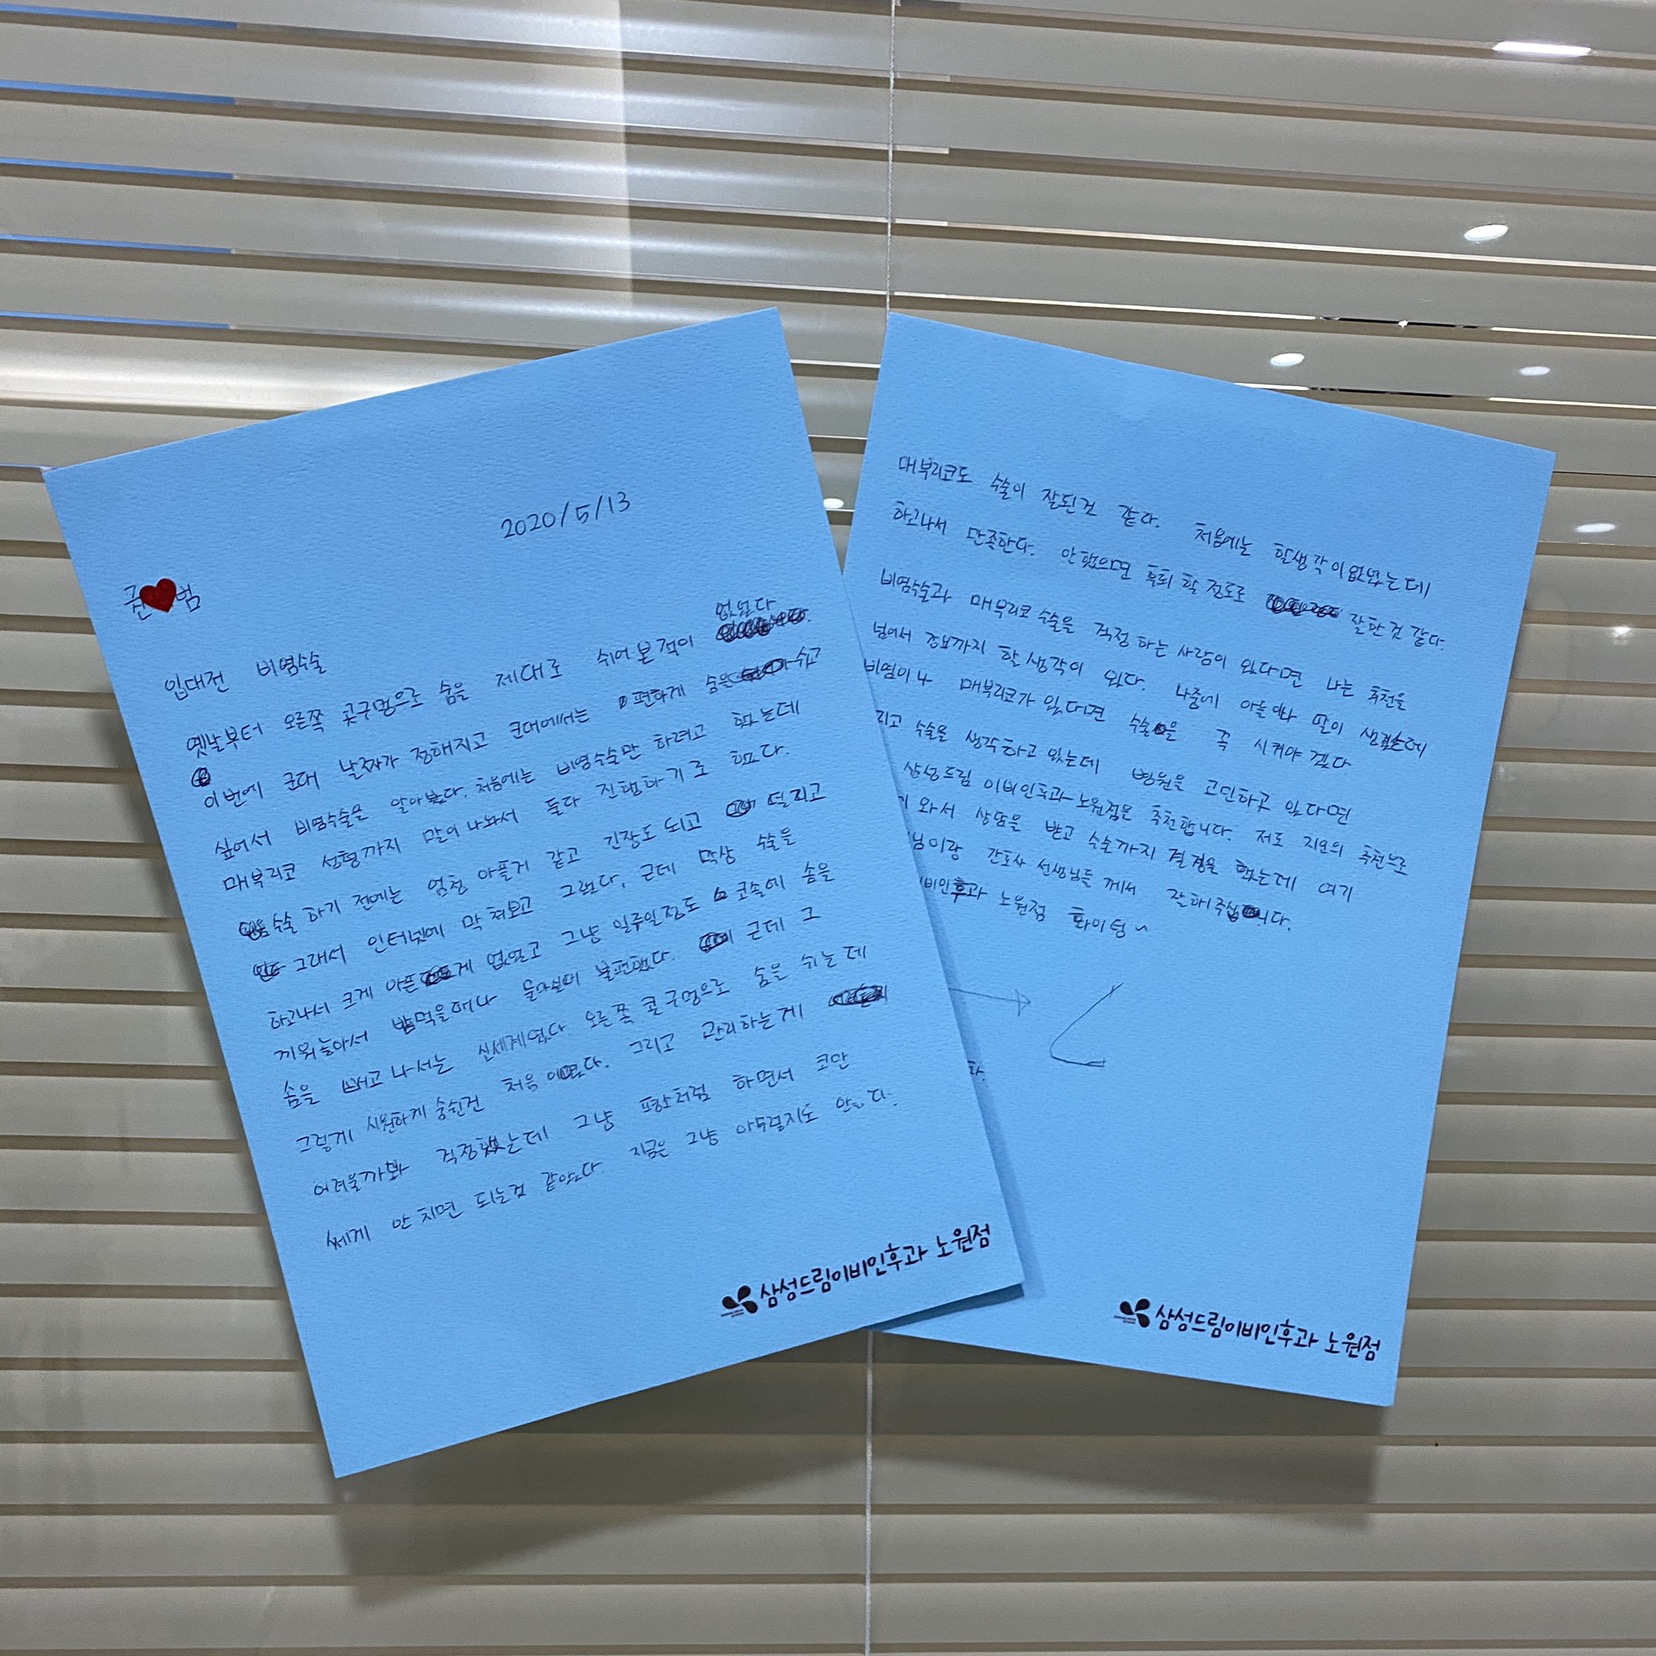 2020/5/13
권 범
입대전 비염수술
없었다
옛날부터 오른쪽 콧구멍으로 숨을 제대로 쉬어본적이
이번에 군대 날짜가 정해지고 군대에서는 편하게 숨을 쉬고
싶어서 비염수술을 알아봤다. 처음에는 비염수술만 하려고 했는데
매부리코 성형까지 말이 나와서 둘다 진행하기로 했다.
수술 하기 전에는 엄청 아플거 같고 긴장도 되고 떨리고
그래서 인터넷에 막 쳐보고 그랬다. 근데 막상 수술을
하고나서 크게 아픈게 없었고 그냥 일주일정도 코속에 솜을
끼워놓아서 밥먹을때나 물마실때 불편했다. 근데 그
솜을 빼고 나서는 신세계였다. 오른쪽 콧구멍으로 숨을 쉬는데
그렇게 시원하게 숨쉰건 처음이였다. 그리고 관리하는게
어려울까봐 걱정했는데 그냥 평소처럼 하면서 코만
쎄게 안 치면 되는것 같았다. 지금은 그냥 아무렇지도 않다.
삼성드림이비인후과 노원점
매부리코도 수술이 잘된건 같다. 처음에는 할생각이없었는데
하고나서 만족한다. 안했으면 후회 할 정도로 잘한것 같다.
비염수술과 매부리코 수술을 걱정 하는 사람이 있다면 나는 추천을
넘어서 강요까지 할 생각이 있다. 나중에 아들이나 딸이 생겼는데
비염이나 매부리코가 있다면 수술을 꼭 시켜야 겠다
리고 수술을 생각하고 있는데 병원을 고민하고 있다면
삼성드림 이비인후과 노원점을 추천합니다. 저도 지인의 추천으로
와서 상담을 받고 수술까지 결정을 했는데 여기
님이랑 간호사 선생님들 께서 잘해주십니다.
비인후과 노원점 화이팅~
삼성드림이비인후과 노원점